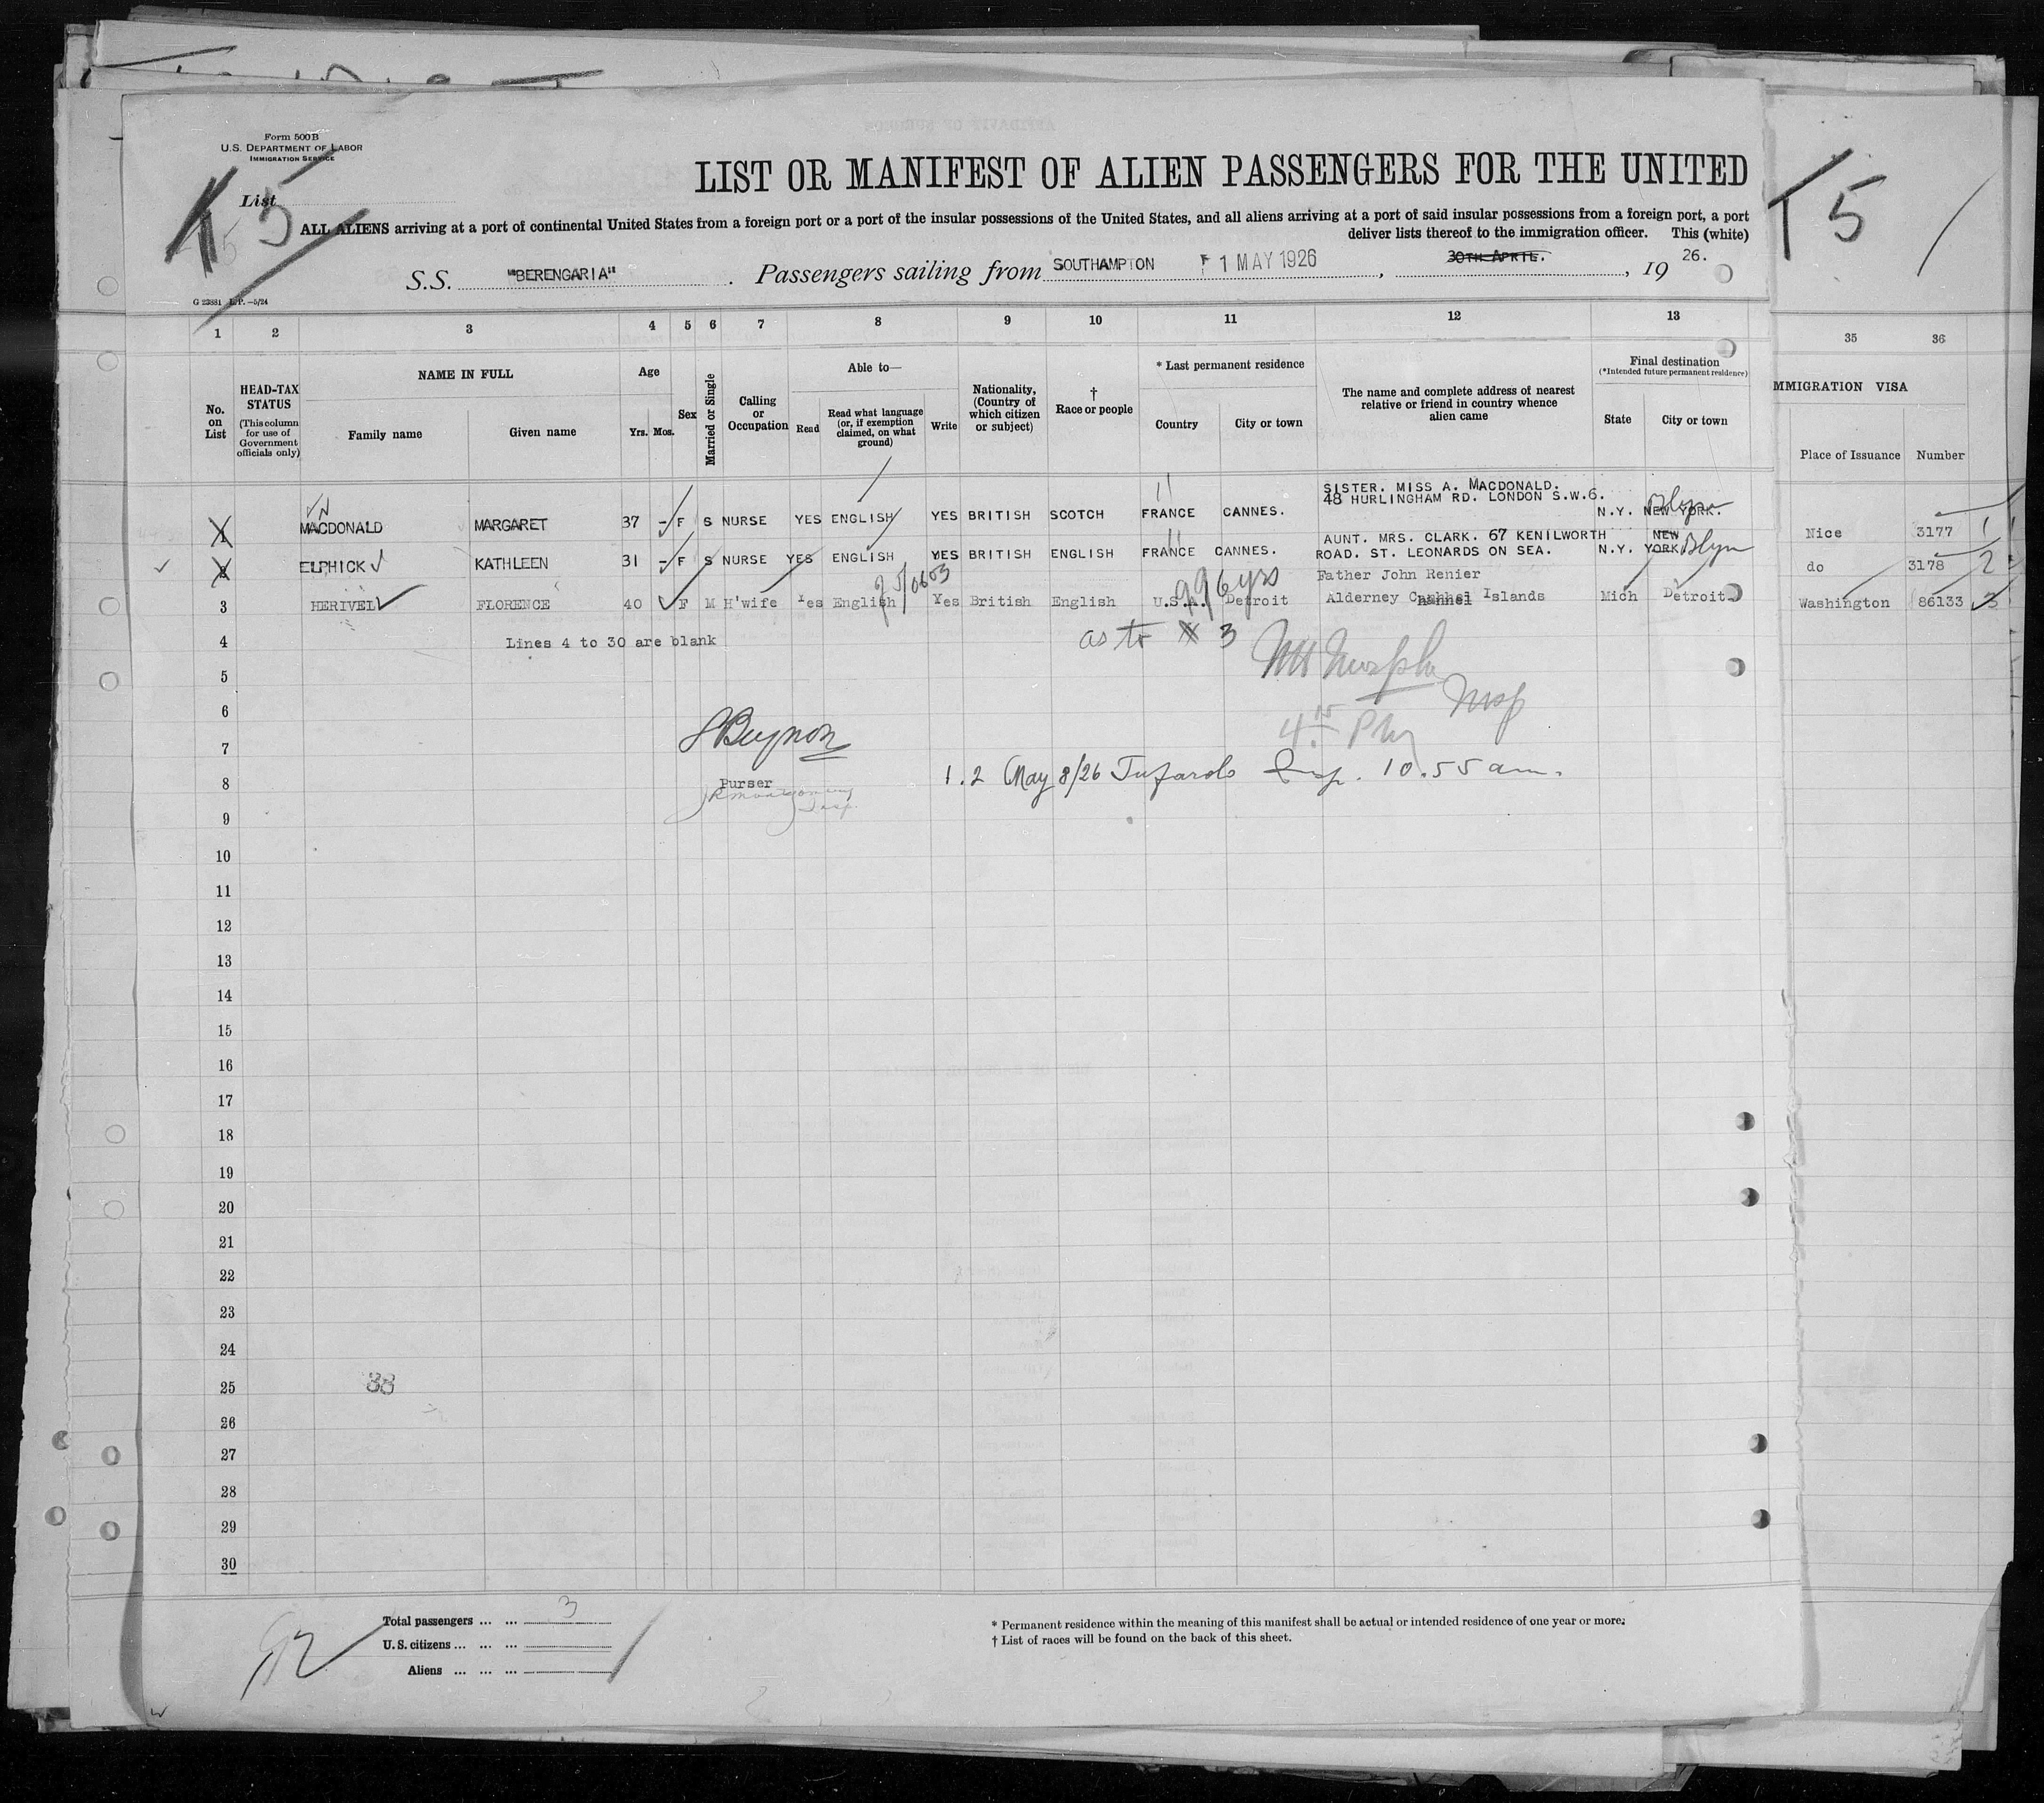 Form 500B
U.S. DEPARTMENT OF LABOR
IMMIGRATION SERVICE
List 5
LIST OR MANIFEST OF ALIEN PASSENGERS FOR THE UNITED
ALL ALIENS arriving at a port of continental United States from a foreign port or a port of the insular possessions of the United States, and all aliens arriving at a port of said insular possessions from a foreign port, a port
deliver lists thereof to the immigration officer. This (white)
S.S. "BERENGARIA". Passengers sailing from SOUTHAMPTON 1 MAY 1926, 30TH APRIL., 1926.
G 23881 L.P. —5/24
5
1 2 3 4 5 6 7 8 9 10 11 12 13 35 36
No. on List
HEAD-TAX STATUS
(This column for use of Government officials only)
NAME IN FULL
Family name Given name
Age
Yrs. Mos.
Sex
Married or Single
Calling or Occupation
Able to—
Read
Read what language (or, if exemption claimed, on what ground)
Write
Nationality, (Country of which citizen or subject)
† Race or people
* Last permanent residence
Country City or town
The name and complete address of nearest relative or friend in country whence alien came
Final destination
(*Intended future permanent residence)
State City or town
MMIGRATION VISA
Place of Issuance Number
SISTER. MISS A. MACDONALD.
1 MACDONALD MARGARET 37 - F S NURSE YES ENGLISH YES BRITISH SCOTCH FRANCE CANNES. 48 HURLINGHAM RD. LONDON S.W.6. N.Y. NEW YORK. Blyn Nice 3177 1
AUNT. MRS. CLARK. 67 KENILWORTH
2 ELPHICK KATHLEEN 31 - F S NURSE YES ENGLISH YES BRITISH ENGLISH FRANCE CANNES. ROAD. ST. LEONARDS ON SEA. N.Y. NEW YORK Blyn do 3178 2
Father John Renier
3 HERIVEL FLORENCE 40 F M H'wife Yes English Yes British English U.S.A. Detroit Alderney Channel Islands Mich Detroit Washington 86133 3
6 yrs
4 Lines 4 to 30 are blank as to 3
5
6
7
8 Purser
1.2 May 8/26 Insp. 10.55 am.
9
10
11
12
13
14
15
16
17
18
19
20
21
22
23
24
25 38
26
27
28
29
30
Total passengers ... ... 3
U.S. citizens ... ... ...
Aliens ... ... ...
* Permanent residence within the meaning of this manifest shall be actual or intended residence of one year or more.
† List of races will be found on the back of this sheet.